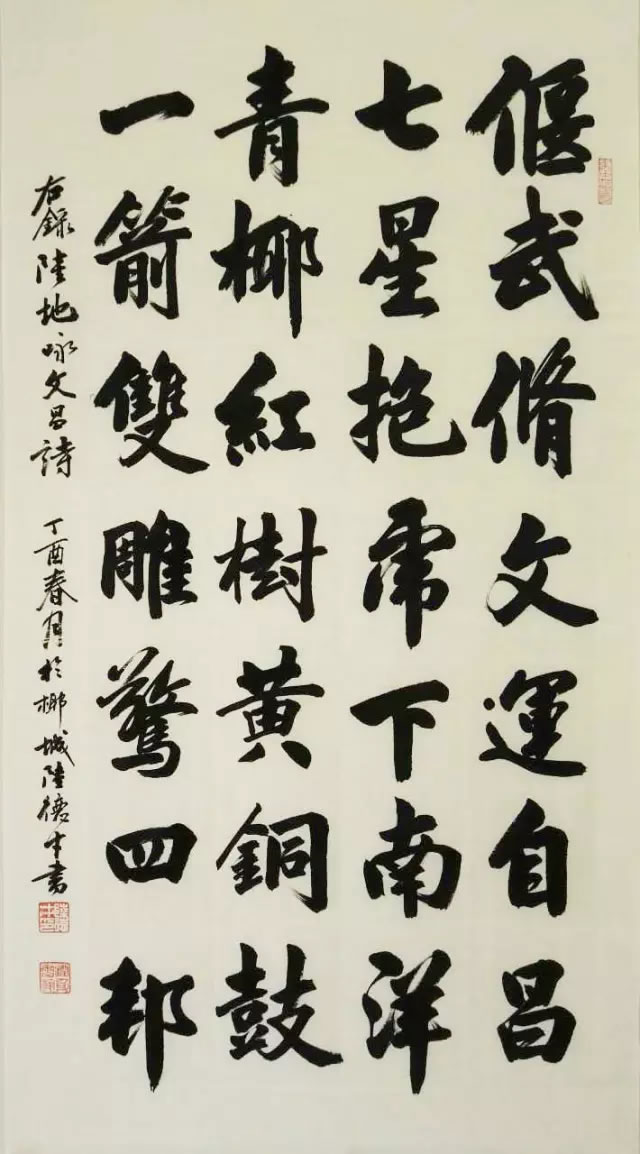 偃武脩文運自昌
七星抱虎下南洋
青椰紅樹黃銅鼓
一箭雙雕驚四邦
右錄陸地詠文昌詩 丁酉春月於椰城陸德才書